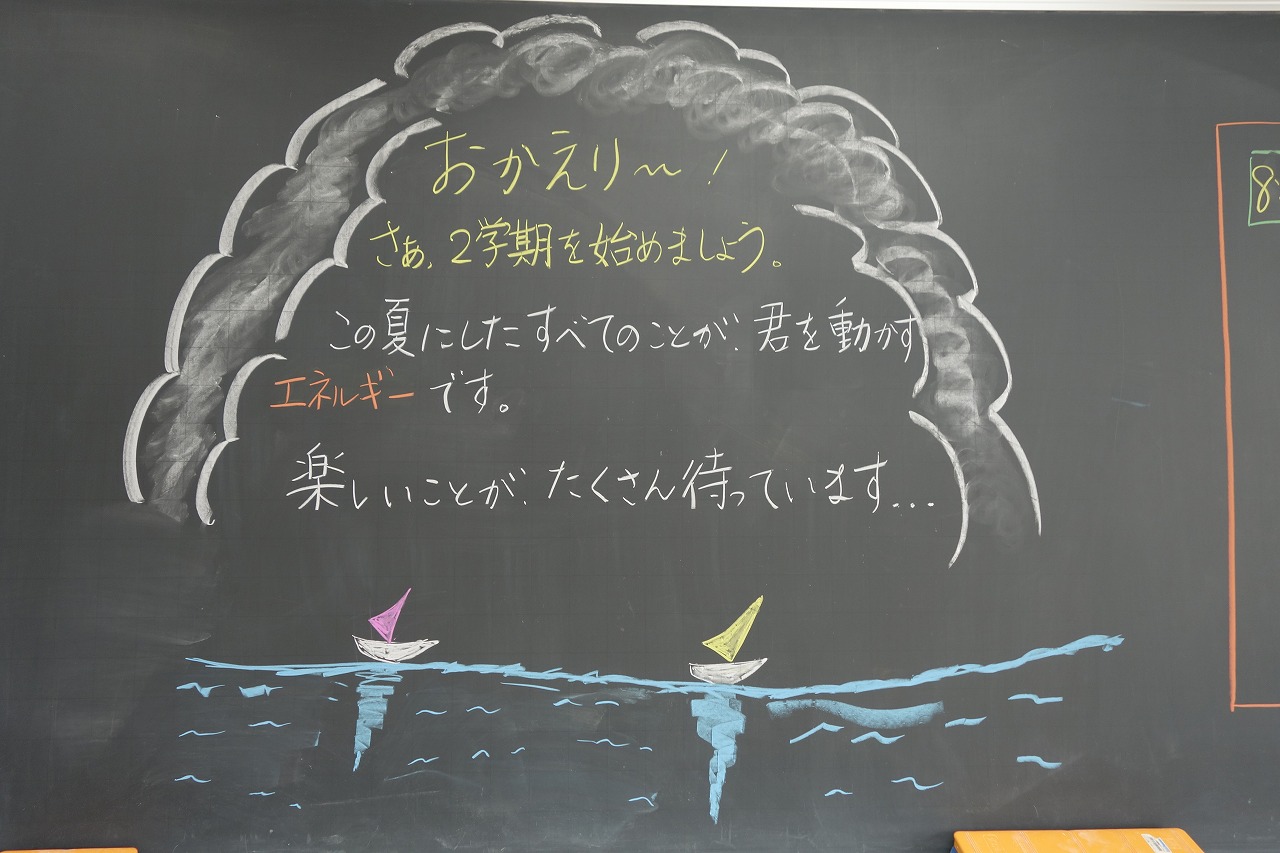 おかえり〜！
さぁ、2学期を始めましょう。
この夏にしたすべてのことが、君を動かす
エネルギーです。
楽しいことが、たくさん待っています...
8